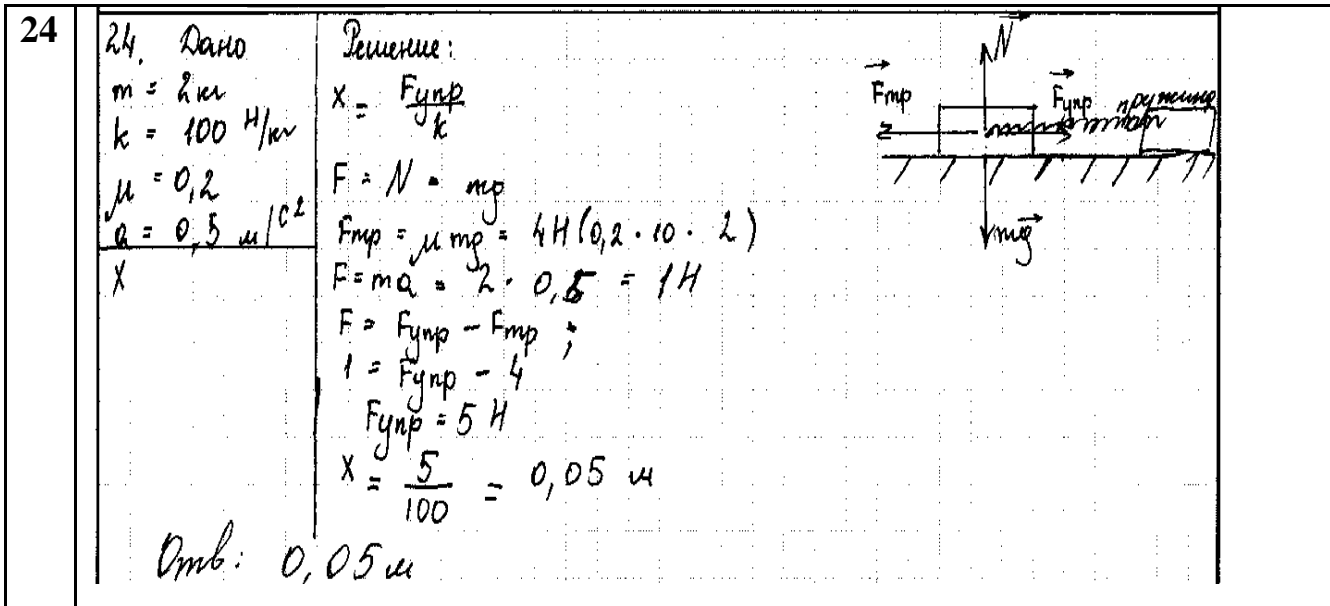 24
24. Дано
m = 2 кг
k = 100 Н/кг
μ = 0,2
a = 0,5 м/с²
X
Решение:
X = Fупр / k
F = N = mg
Fтр = μ mg = 4Н (0,2 · 10 · 2)
F = ma = 2 · 0,5 = 1Н
F = Fупр - Fтр ;
1 = Fупр - 4
Fупр = 5 Н
X = 5 / 100 = 0,05 м
Отв: 0,05 м
N
Fтр
Fупр
пружина
mg